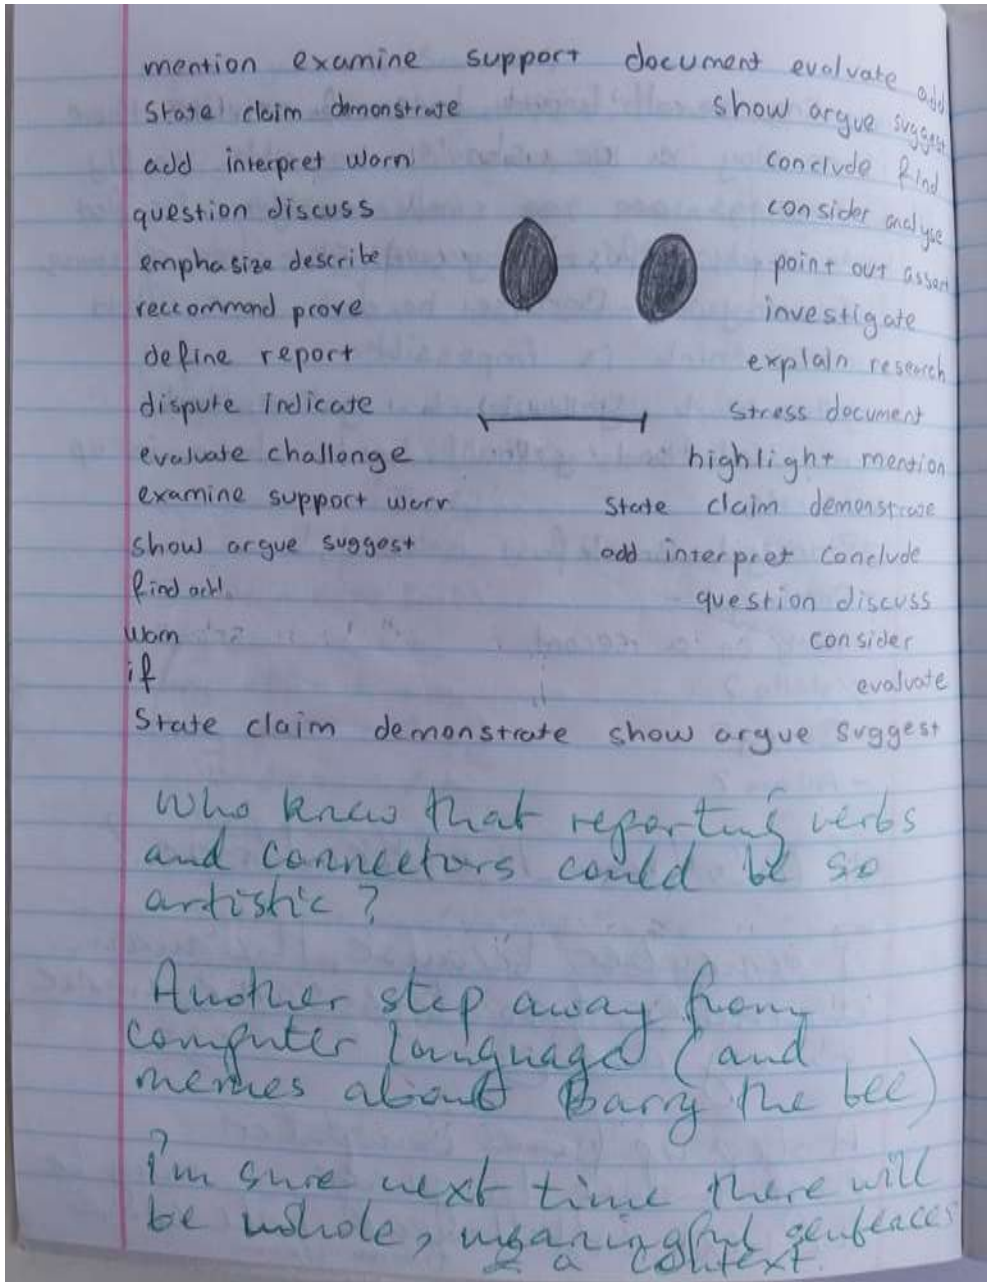 mention examine support document evaluate add
State claim demonstrate show argue suggest
add interpret worn conclude find
question discuss consider analyse
emphasize describe point out assert
reccommend prove investigate
define report explain research
dispute indicate stress document
evaluate challenge highlight mention
examine support warn state claim demonstrate
show argue suggest add interpret conclude
find add question discuss
warn consider
if evaluate
State claim demonstrate show argue suggest
Who knew that reporting verbs
and connectors could be so
artistic?
Another step away from
computer language (and
memes about Barry the bee)
I'm sure next time there will
be whole, meaningful sentences
& a context.